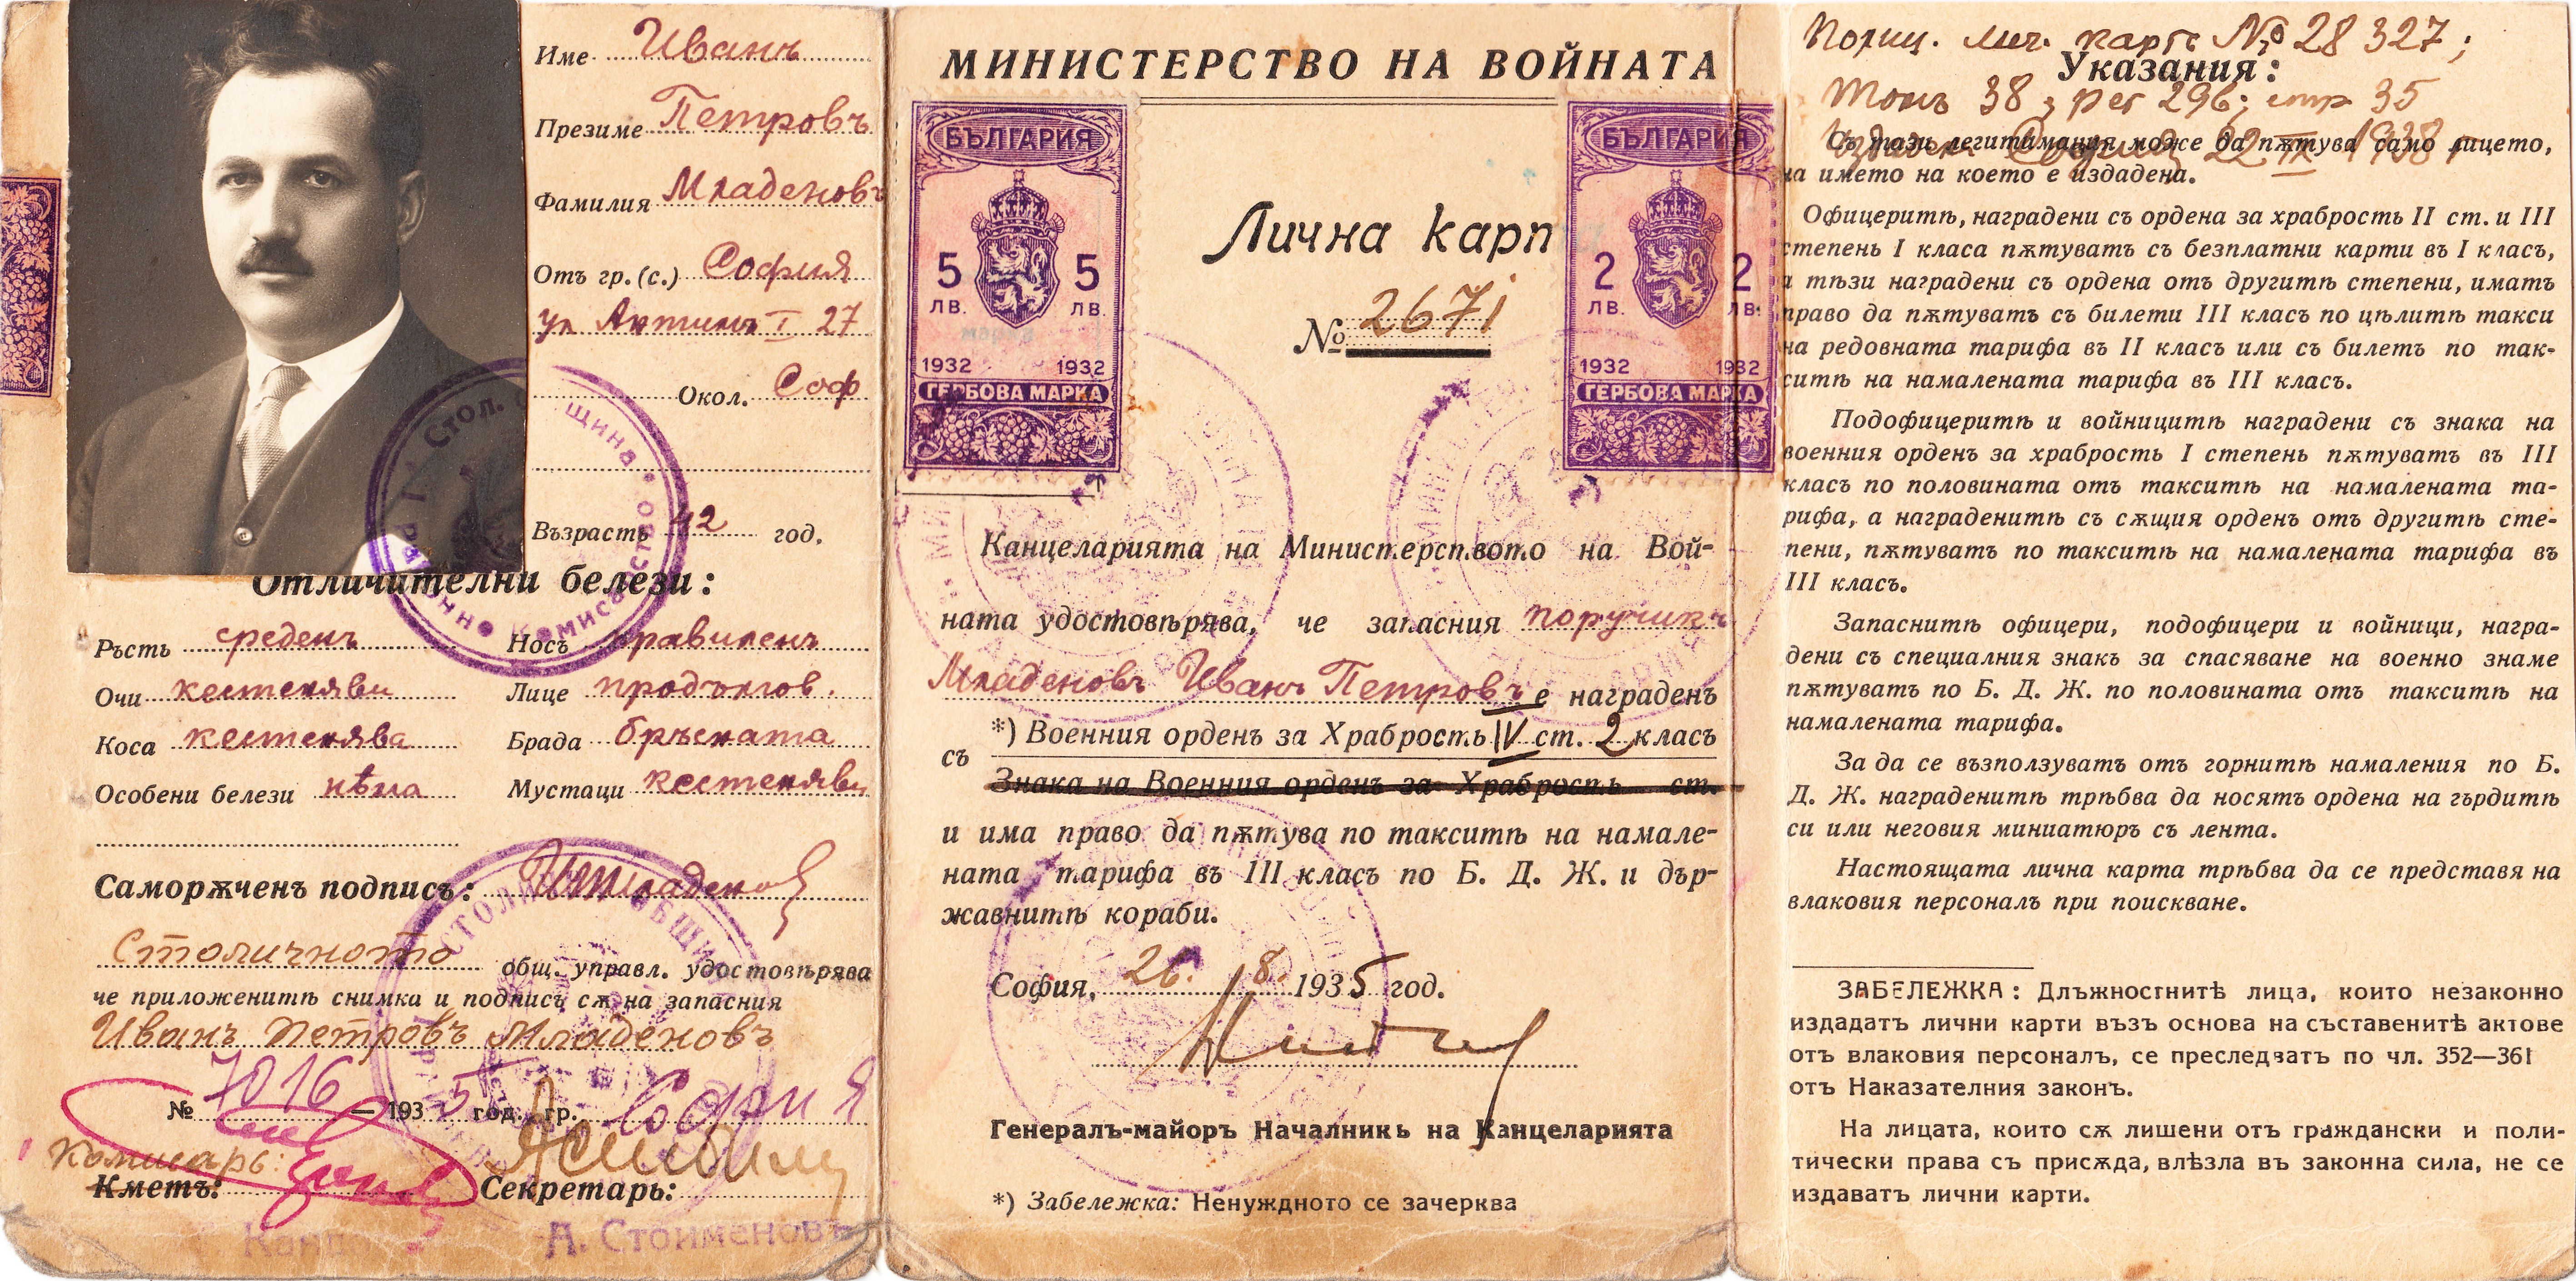 Име Иванъ
Презиме Петровъ
Фамилия Младеновъ
Отъ гр. (с.) София
ул Антимъ I 27
Окол. Соф
Възрасть 42 год.
Отличителни белези:
Ръсть среденъ
Носъ правиленъ
Очи кестеняви
Лице продългов.
Коса кестенява
Брада бръсната
Особени белези нѣма
Мустаци кестеняви
Саморѫченъ подпись: Младеновъ
Столичното общ. управл. удостовѣрява
че приложенитѣ снимка и подпись сѫ на запасния
Иванъ Петровъ Младеновъ
№ 7016 — 1935 год. гр. София
Комисарь:
Кметъ: Секретарь:
А. Стоименовъ
МИНИСТЕРСТВО НА ВОЙНАТА
БЪЛГАРИЯ
5 5
ЛВ. ЛВ.
1932 1932
ГЕРБОВА МАРКА
БЪЛГАРИЯ
2 2
ЛВ. ЛВ.
1932 1932
ГЕРБОВА МАРКА
Лична карт
№ 2671
Канцеларията на Министерството на Вой-
ната удостовѣрява, че запасния поручикъ
Младеновъ Иванъ Петровъ е награденъ
съ *) Военния орденъ за Храбрость IV ст. 2 класъ
Знака на Военния орденъ за Храбрость ст.
и има право да пѫтува по такситѣ на намале-
ната тарифа въ III класъ по Б. Д. Ж. и дър-
жавнитѣ кораби.
София, 26. 8. 1935 год.
Генералъ-майоръ Началникъ на Канцеларията
*) Забележка: Ненуждното се зачерква
Полиц. лич. карта № 28327;
Указания:
Томъ 38; рег 296; стр 35
София 22 IX 1938 г
Съ тази легитимация може да пѫтува само лицето,
на името на което е издадена.
Офицеритѣ, наградени съ ордена за храбрость II ст. и III
степень I класа пѫтуватъ съ безплатни карти въ I класъ,
а тѣзи наградени съ ордена отъ другитѣ степени, иматъ
право да пѫтуватъ съ билети III класъ по цѣлитѣ такси
на редовната тарифа въ II класъ или съ билетъ по так-
ситѣ на намалената тарифа въ III класъ.
Подофицеритѣ и войницитѣ наградени съ знака на
военния орденъ за храбрость I степень пѫтуватъ въ III
класъ по половината отъ такситѣ на намалената та-
рифа, а награденитѣ съ сѫщия орденъ отъ другитѣ сте-
пени, пѫтуватъ по такситѣ на намалената тарифа въ
III класъ.
Запаснитѣ офицери, подофицери и войници, награ-
дени съ специалния знакъ за спасяване на военно знаме
пѫтуватъ по Б. Д. Ж. по половината отъ такситѣ на
намалената тарифа.
За да се възползуватъ отъ горнитѣ намаления по Б.
Д. Ж. награденитѣ трѣбва да носятъ ордена на гърдитѣ
си или неговия миниатюръ съ лента.
Настоящата лична карта трѣбва да се представя на
влаковия персоналъ при поискване.
ЗАБЕЛЕЖКА: Длъжностнитѣ лица, които незаконно
издадатъ лични карти възъ основа на съставенитѣ актове
отъ влаковия персоналъ, се преследватъ по чл. 352—361
отъ Наказателния законъ.
На лицата, които сѫ лишени отъ граждански и поли-
тически права съ присѫда, влѣзла въ законна сила, не се
издаватъ лични карти.